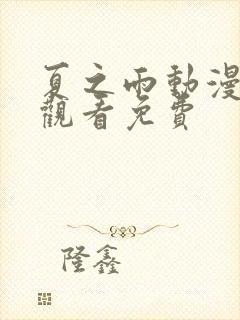 夏之雨動漫
觀看免費
隆鑫